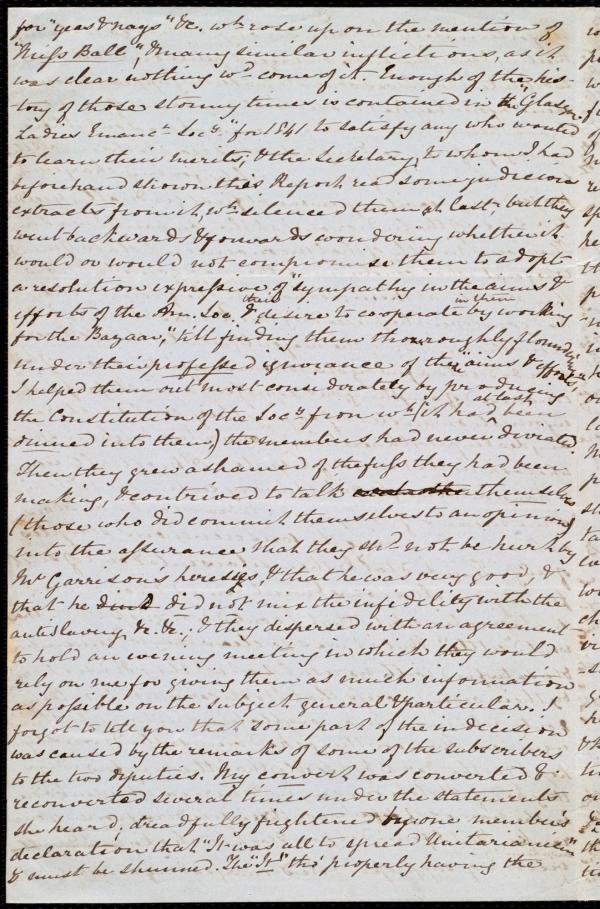 for "yeas & nays" &c. wh rose up on the mention of
"Miss Ball", & many similar inflictions, as it
was clear nothing wd come of it. Enough of the his-
tory of those stormy times is contained in the "Glasgow
Ladies Emanct Socy" for 1841 to satisfy any who wanted
to learn their merits; & the Secretary, to whom I had
beforehand shown this Report read some judicious
extracts from it, wh silenced them at last; but they
went backwards & forwards wondering whether it
would or would not compromise them to adopt
a resolution expressive of "sympathy in the aims &
efforts of the Am. Soc. & their desire to cooperate in them by working
for the Bazaar," till finding them thouroughly floundering
under their professed ignorance of the "aims & efforts"
I helped them out most considerately by producing
the Constitution of the Socy from wh (it had at last been
dinned into them) the members had never diviated.
Then they grew ashamed of the fuss they had been
making, & contrived to talk themselves
(those who did commit themselves to an opinion)
into the assurance that they shd not be hurt by
Mr Garrison's heresies, & that he was very good, &
that he did not mix the infidelity with the
antislavery, &c. &c., & they dispersed with an agreement
to hold an evening meeting in which they would
rely on me for giving them as much information
as possible on the subject general & particular. I
forgot to tell you that some part of the indecision
was caused by the remarks of some of the subscribers
to the two deputies. My convert was converted &
reconverted several times under the statements
she heard, dreadfully frightened by one member's
declaration that "It was all to spread Unitarianism"
& must be shunned. The "It" tho' properly having the